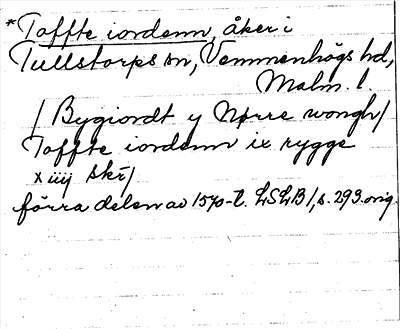 *Toffte iordenn, åker i
Tullstorps sn, Vemmenhögs hd,
Malm. l.
/ Bygiordt y Nørre wongh /
Toffte iordenn ix rygge
x iiij skr /
förra delen av 1570-t. LSLB 1, s. 293. orig.